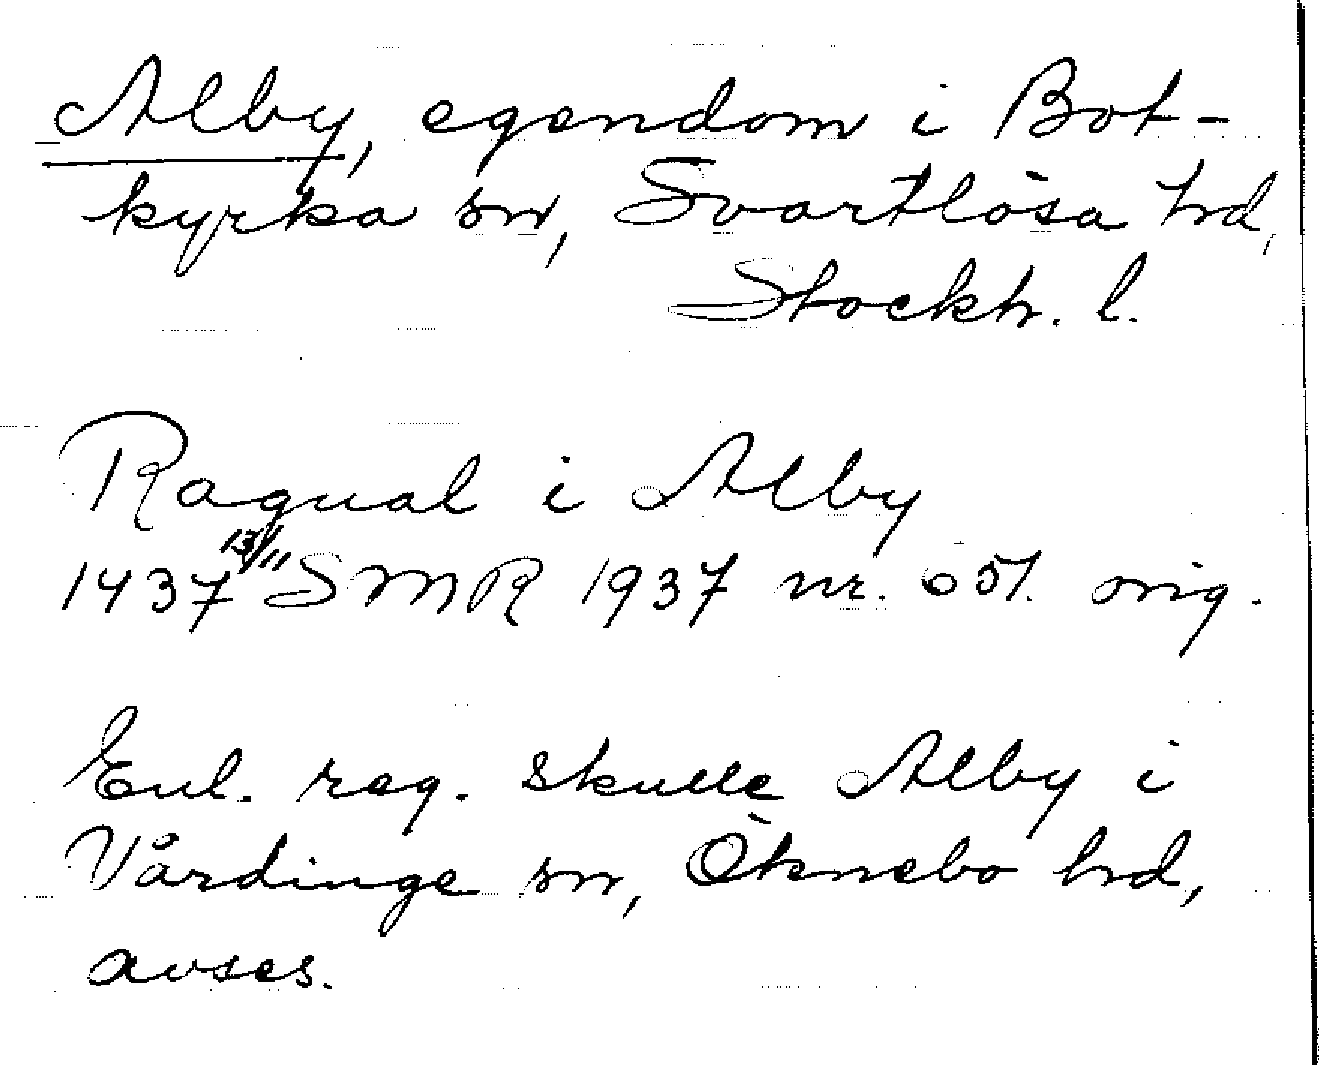 Alby, egendom i Bot-
kyrka sn, Svartlösa hd,
Stockh. l.
Ragual i Alby
1437 13/11 SMR 1937 nr. 651. orig.
Enl. reg. skulle Alby i
Vårdinge sn, Öknebo hd,
avses.